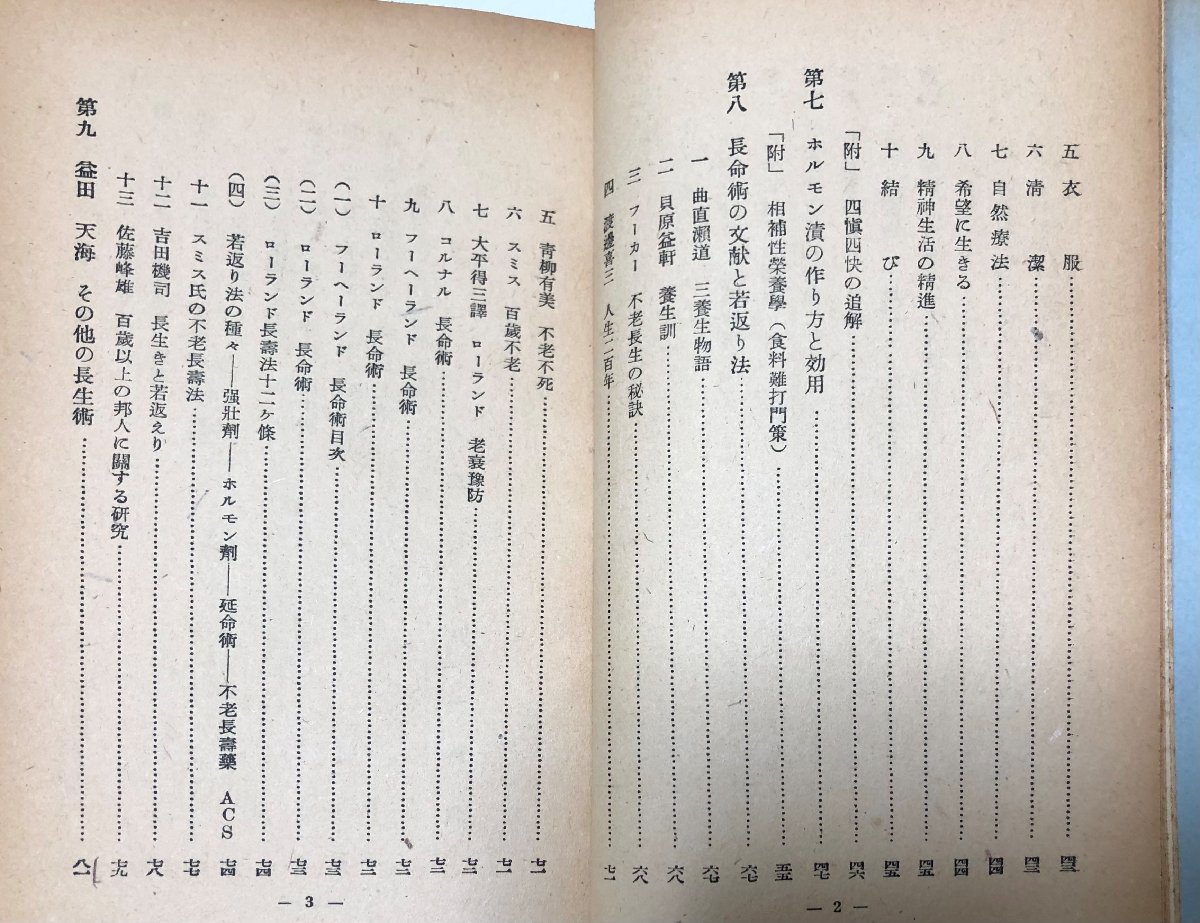 五 衣服……四三
六 清潔……四三
七 自然療法……四四
八 希望に生きる……四四
九 精神生活の精進……四五
十 結び……四五
「附」 四愼四快の追解……四六
第七 ホルモン漬の作り方と効用……四七
「附」 相補性榮養學（食料難打門策）……五五
第八 長命術の文献と若返り法……六七
一 曲直瀬道三養生物語……六七
二 貝原益軒 養生訓……六八
三 フーカー 不老長生の秘訣……六八
四 渡邊喜三 人生二百年……七一
— 2 —
五 靑柳有美 不老不死……七一
六 スミス 百歲不老……七一
七 大平得三譯 ローランド 老衰豫防……七二
八 コルナル 長命術……七二
九 フーヘーランド 長命術……七二
十 ローランド 長命術……七三
（一） フーヘーランド 長命術目次……七三
（二） ローランド 長命術……七三
（三） ローランド長壽法十二ケ條……七四
（四） 若返り法の種々——强壯劑——ホルモン劑——延命術——不老長壽藥 ACS……七四
十一 スミス氏の不老長壽法……七七
十二 吉田機司 長生きと若返えり……七八
十三 佐藤峰雄 百歲以上の邦人に關する硏究……七九
第九 益田 天海 その他の長生術……八一
— 3 —